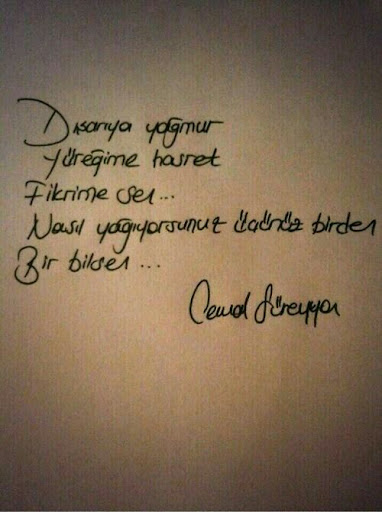 Dışarıya yağmur
Yüreğime hasret
Fikrime sen...
Nasıl yağıyorsunuz üçünüz birden
Bir bilsen...
Cemal Süreyya